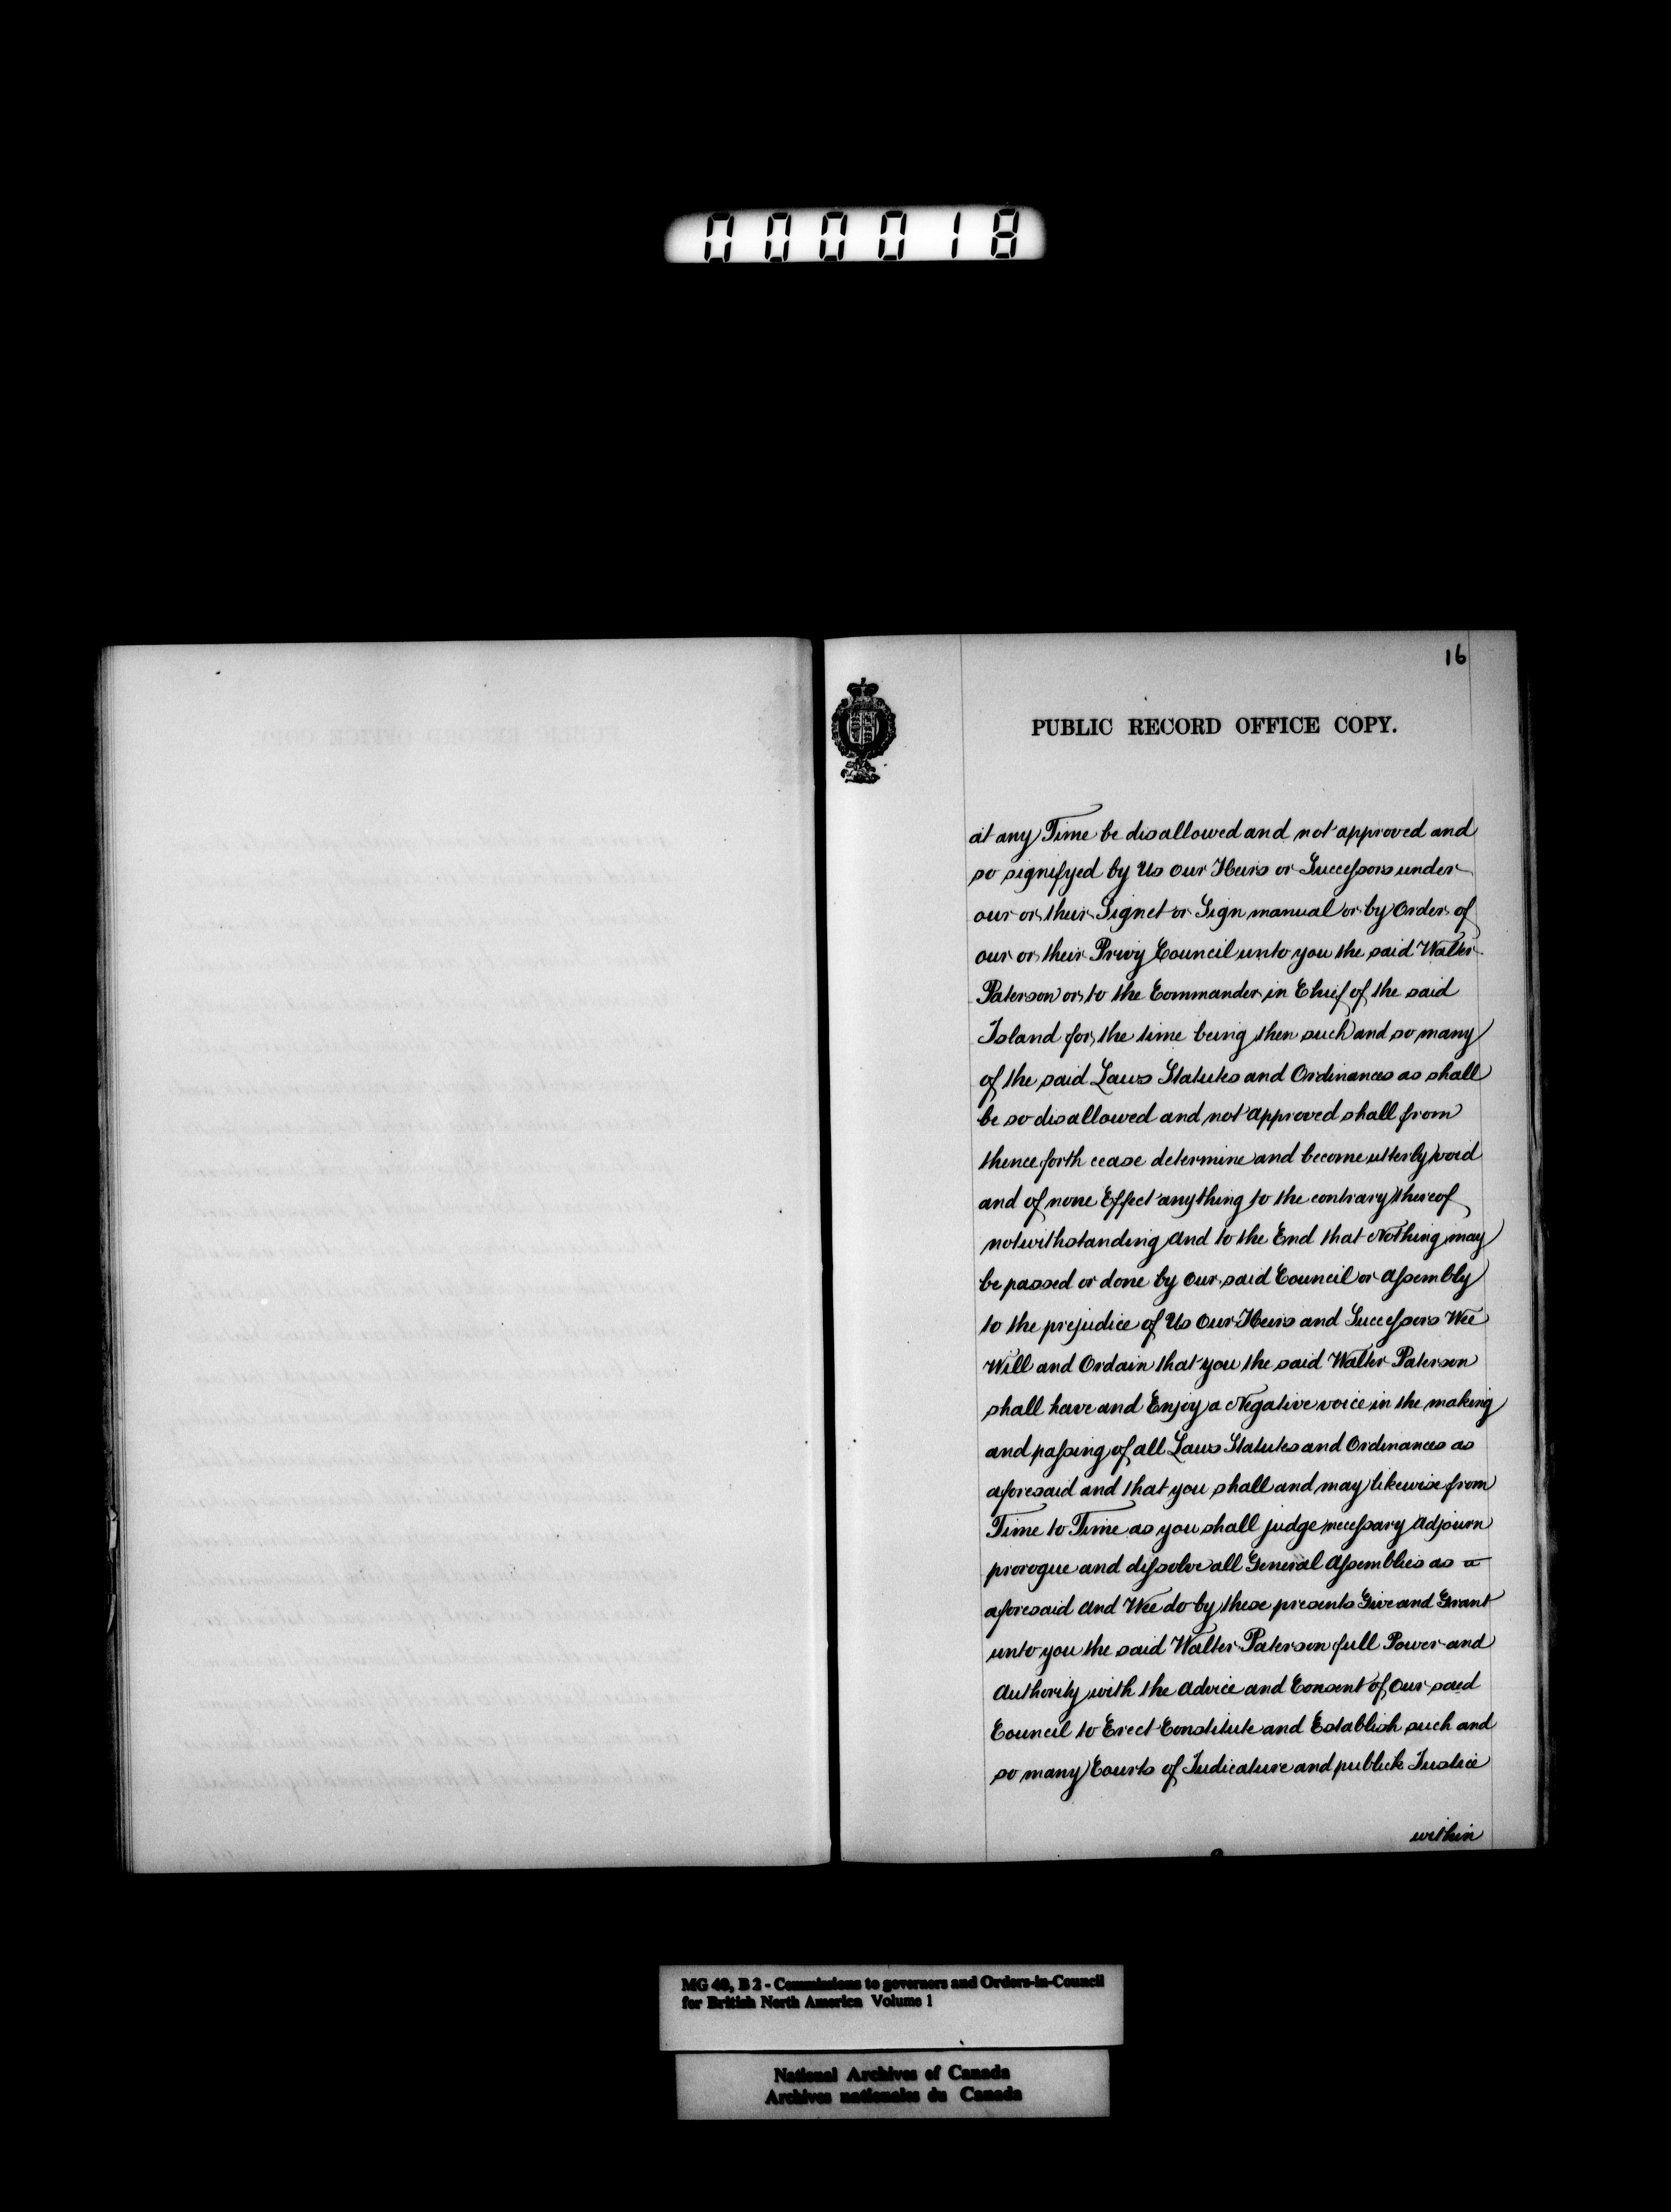 000018
16
PUBLIC RECORD OFFICE COPY.
at any Time be disallowed and not approved and
so signifyed by Us Our Heirs or Successors under
our or their Signet or Sign manual or by Order of
our or their Privy Council unto you the said Walter
Paterson or to the Commander in Chief of the said
Island for the time being then such and so many
of the said Laws Statutes and Ordinances as shall
be so disallowed and not approved shall from
thence forth cease determine and become utterly void
and of none Effect anything to the contrary thereof
notwithstanding And to the End that Nothing may
be passed or done by Our said Council or Assembly
to the prejudice of Us Our Heirs and Successors Wee
Will and Ordain that you the said Walter Paterson
shall have and Enjoy a Negative voice in the making
and passing of all Laws Statutes and Ordinances as
aforesaid and that you shall and may likewise from
Time to Time as you shall judge necessary Adjourn
prorogue and dissolve all General Assemblies as a
aforesaid And Wee do by these presents Give and Grant
unto you the said Walter Paterson full Power and
Authority with the Advice and Consent of Our said
Council to Erect Constitute and Establish such and
so many Courts of Judicature and publick Justice
within
MG 40, B 2 - Commissions to governors and Orders-in-Council
for British North America Volume 1
National Archives of Canada
Archives nationales du Canada